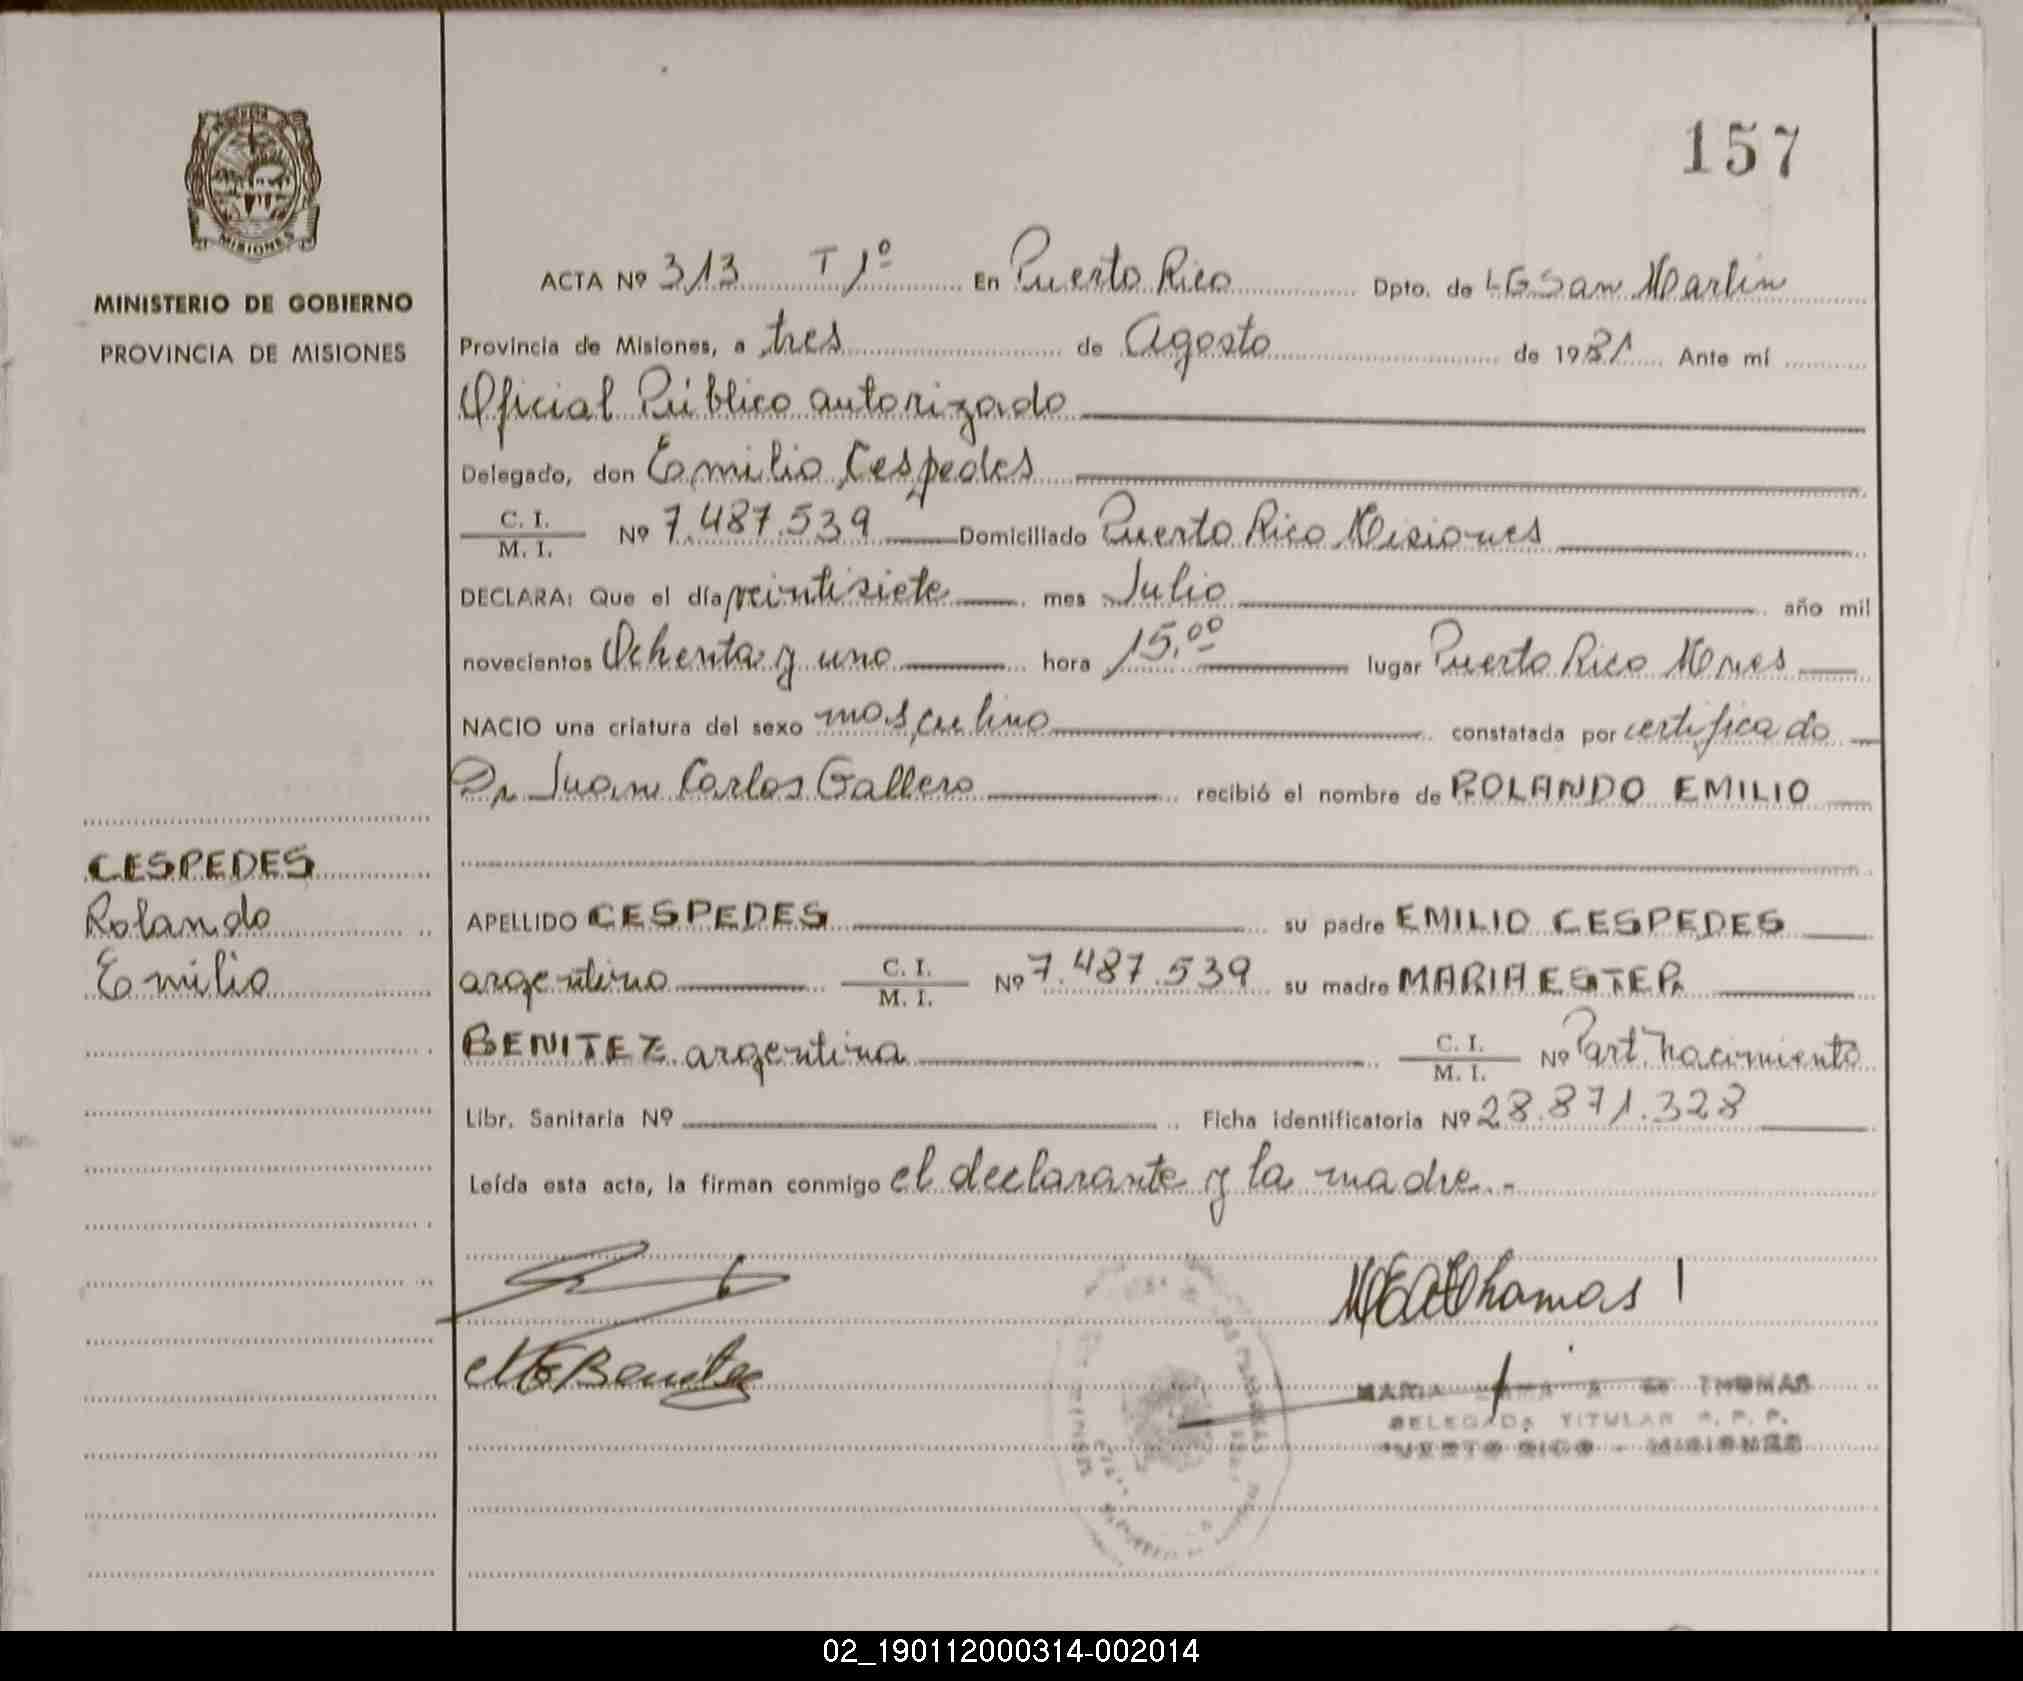 157
MISIONES
MINISTERIO DE GOBIERNO
PROVINCIA DE MISIONES
CESPEDES
Rolando
Emilio
ACTA Nº 313 T 1º En Puerto Rico Dpto. de LG San Martin
Provincia de Misiones, a tres de Agosto de 1981 Ante mí
Oficial Público autorizado
Delegado, don Emilio Cespedes
C. I.
M. I. Nº 7.487.539 Domiciliado Puerto Rico Misiones
DECLARA: Que el día veintisiete mes Julio año mil
novecientos Ochenta y uno hora 15,00 lugar Puerto Rico Mnes
NACIO una criatura del sexo masculino constatada por certificado
Dr Juan Carlos Gallero recibió el nombre de ROLANDO EMILIO
APELLIDO CESPEDES su padre EMILIO CESPEDES
argentino C. I. M. I. Nº 7.487.539 su madre MARIA ESTER
BENITEZ argentina C. I. M. I. Nº Part. Nacimiento
Libr. Sanitaria Nº Ficha identificatoria Nº 28.871.328
Leída esta acta, la firman conmigo el declarante y la madre.-
MEBenitez
Thomas
MARIA THOMAS
DELEGADA TITULAR R. P. P.
PUERTO RICO - MISIONES
02_190112000314-002014